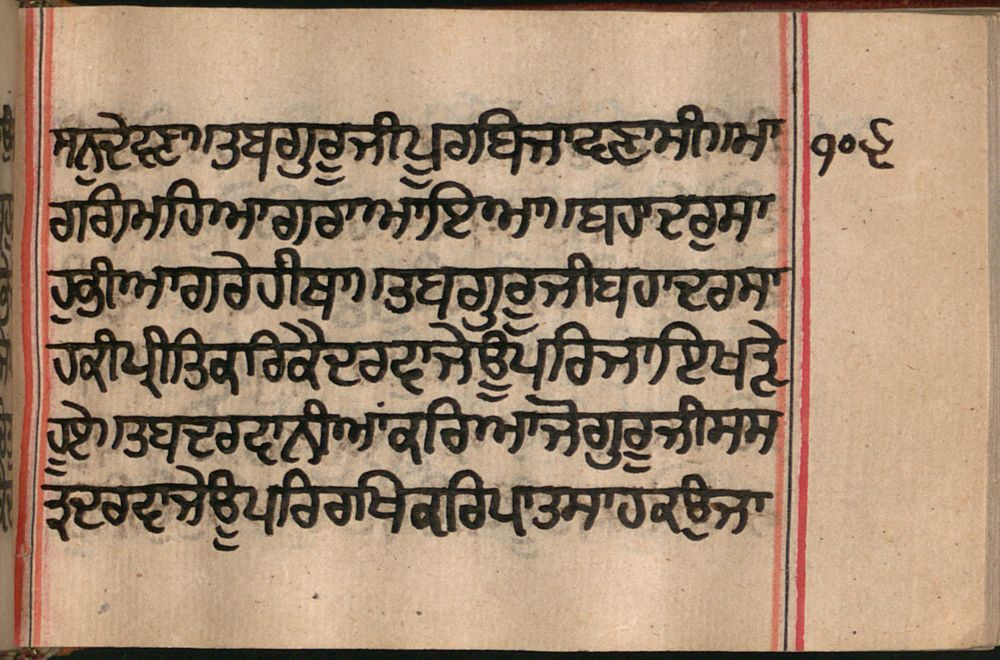 ਸਨੁਦੇਵਣਾ॥ਤਬਗੁਰੂਜੀਪੂਰਬਿਜਾਵਣਾਸੀ॥ਮਾ
ਰਗਿਮਹਿਆਗਰਾਆਇਆ॥ਬਹਾਦਰੁਸਾ
ਹੁਭੀਆਗਰੇਹੀਥਾ॥ਤਬਗੁਰੂਜੀਬਹਾਦਰਸਾ
ਹਕੀਪ੍ਰੀਤਿਕਰਿਕੈਦਰਵਾਜੇਊਪਰਿਜਾਇਖੜੇ
ਹੂਏ॥ਤਬਦਰਵਾਨੀਆਂਕਹਿਆਜੋਗੁਰੂਜੀਸਸ
ਤ੍ਰਦਰਵਾਜੇਊਪਰਿਰਖਿਕਰਿਪਾਤਸਾਹਕਉਜਾ
੧੦੬